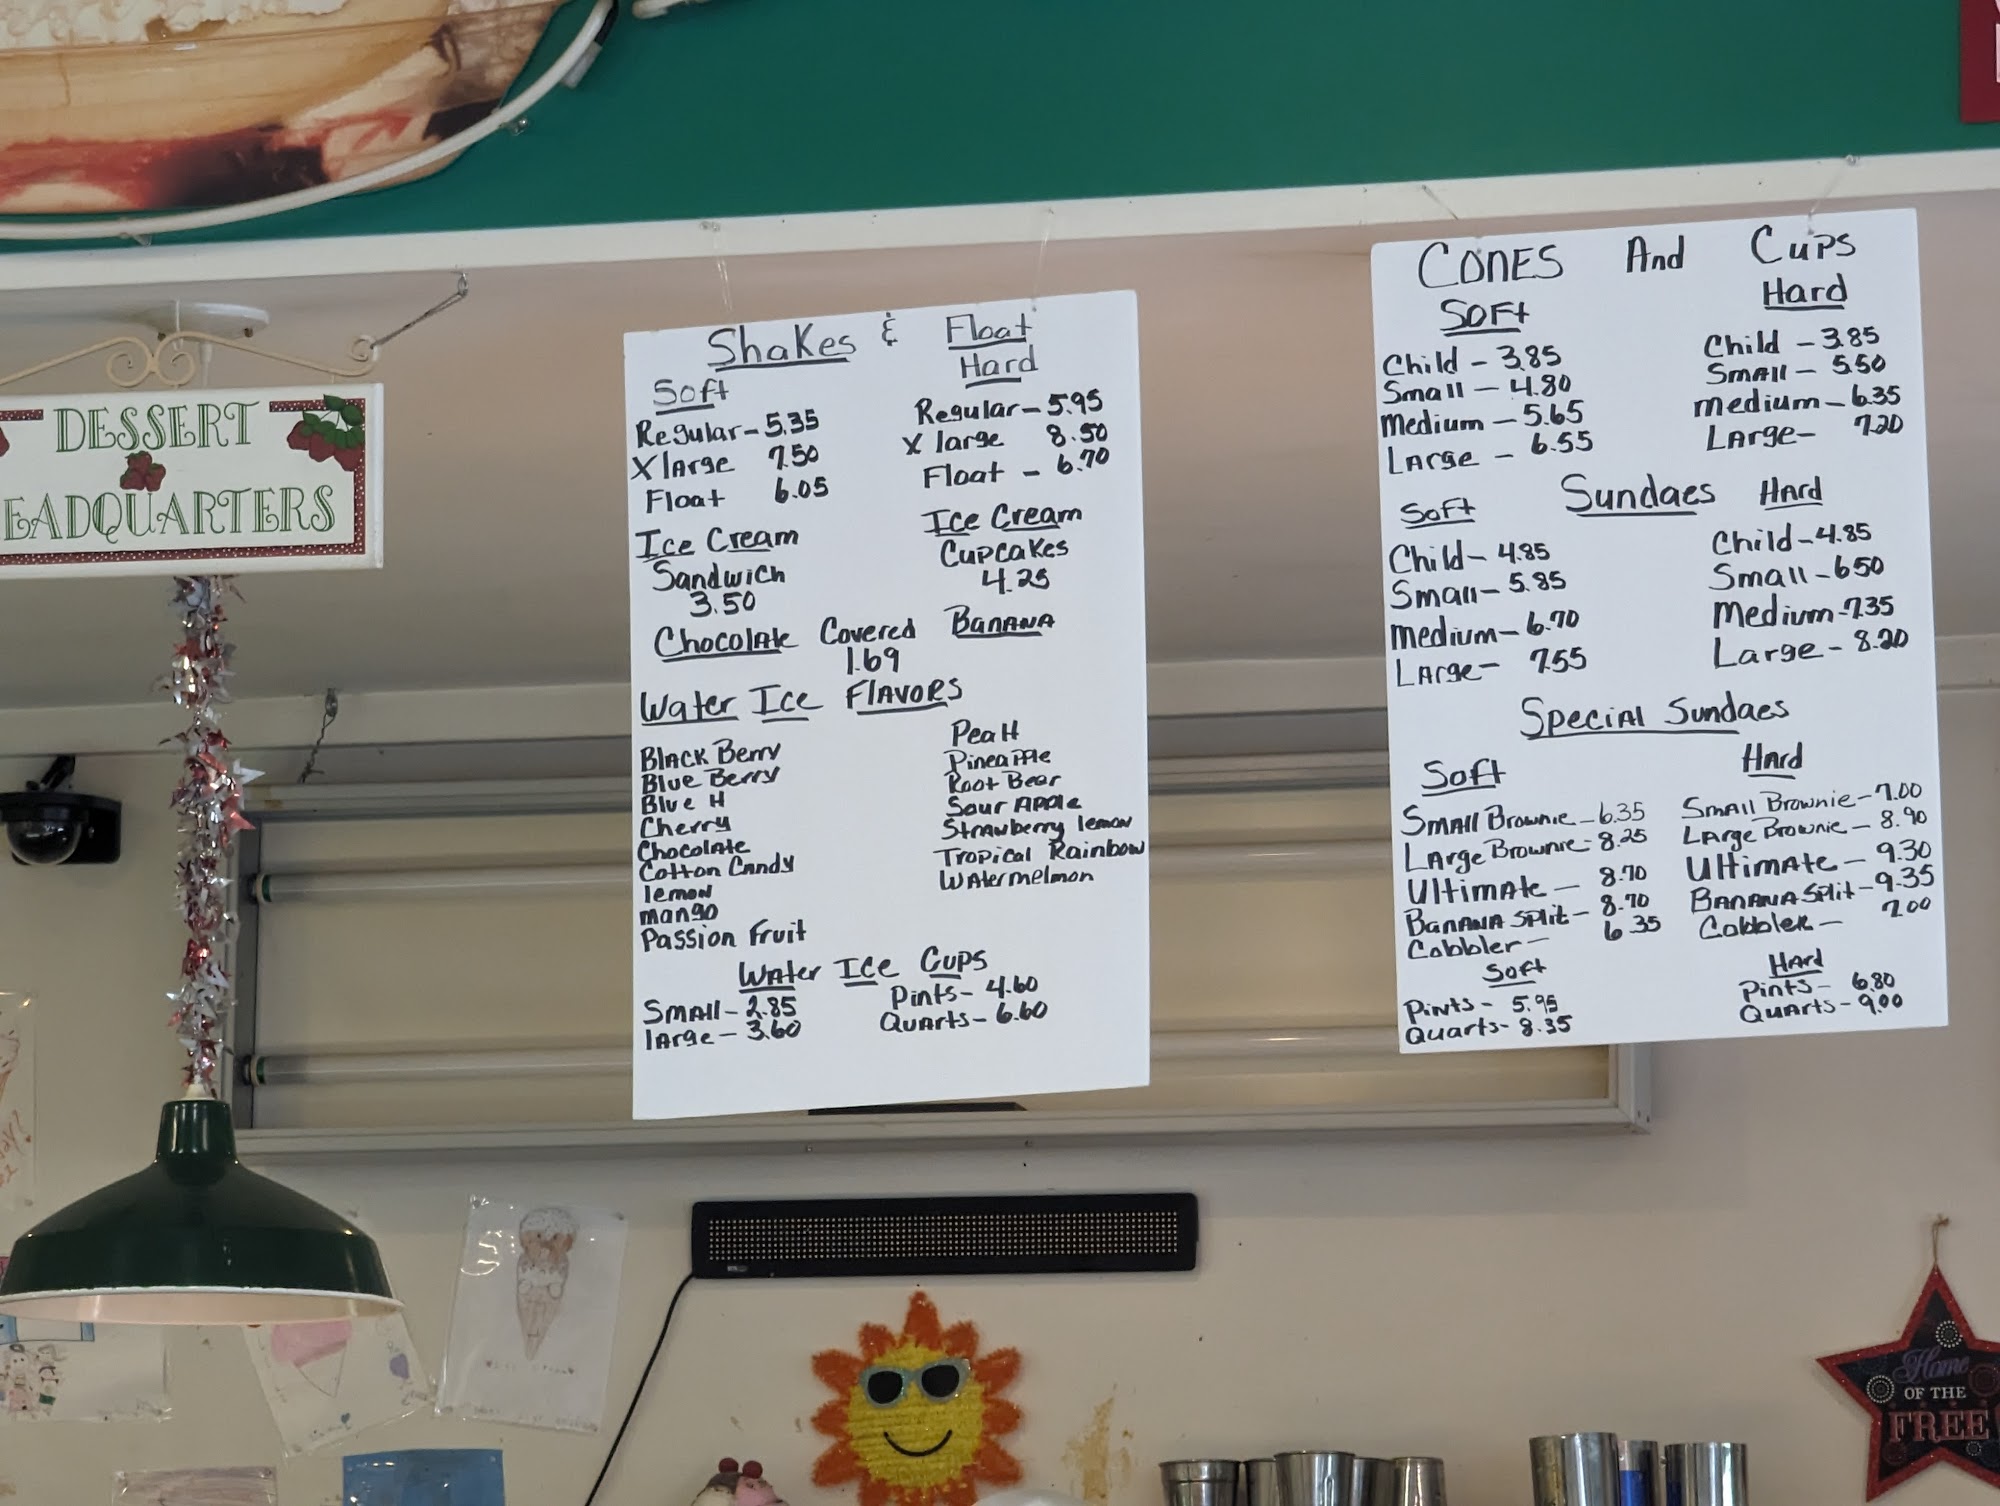 DESSERT
EADQUARTERS
Shakes & Float
Soft Hard
Regular - 5.35 Regular - 5.95
X large 7.50 X large 8.50
Float 6.05 Float - 6.70
Ice Cream Ice Cream
Sandwich Cupcakes
3.50 4.25
Chocolate Covered Banana
1.69
Water Ice Flavors
Black Berry
Blue Berry
Blue H
Cherry
Chocolate
Cotton Candy
lemon
mango
Passion Fruit
Pea H
Pineapple
Root Bear
Sour Apple
Strawberry lemon
Tropical Rainbow
Watermelmon
Water Ice Cups
Small - 2.85 Pints - 4.60
large - 3.60 Quarts - 6.60
Cones And Cups
Soft Hard
Child - 3.85 Child - 3.85
Small - 4.80 Small - 5.50
Medium - 5.65 medium - 6.35
Large - 6.55 Large - 7.20
Sundaes
Soft Hard
Child - 4.85 Child - 4.85
Small - 5.85 Small - 6.50
Medium - 6.70 Medium - 7.35
Large - 7.55 Large - 8.20
Special Sundaes
Soft Hard
Small Brownie - 6.35 Small Brownie - 7.00
Large Brownie - 8.25 Large Brownie - 8.90
Ultimate - 8.70 Ultimate - 9.30
Banana Split - 8.70 Banana Split - 9.35
Cobbler - 6.35 Cobbler - 7.00
Soft Hard
Pints - 5.95 Pints - 6.80
Quarts - 8.35 Quarts - 9.00
Home
OF THE
FREE